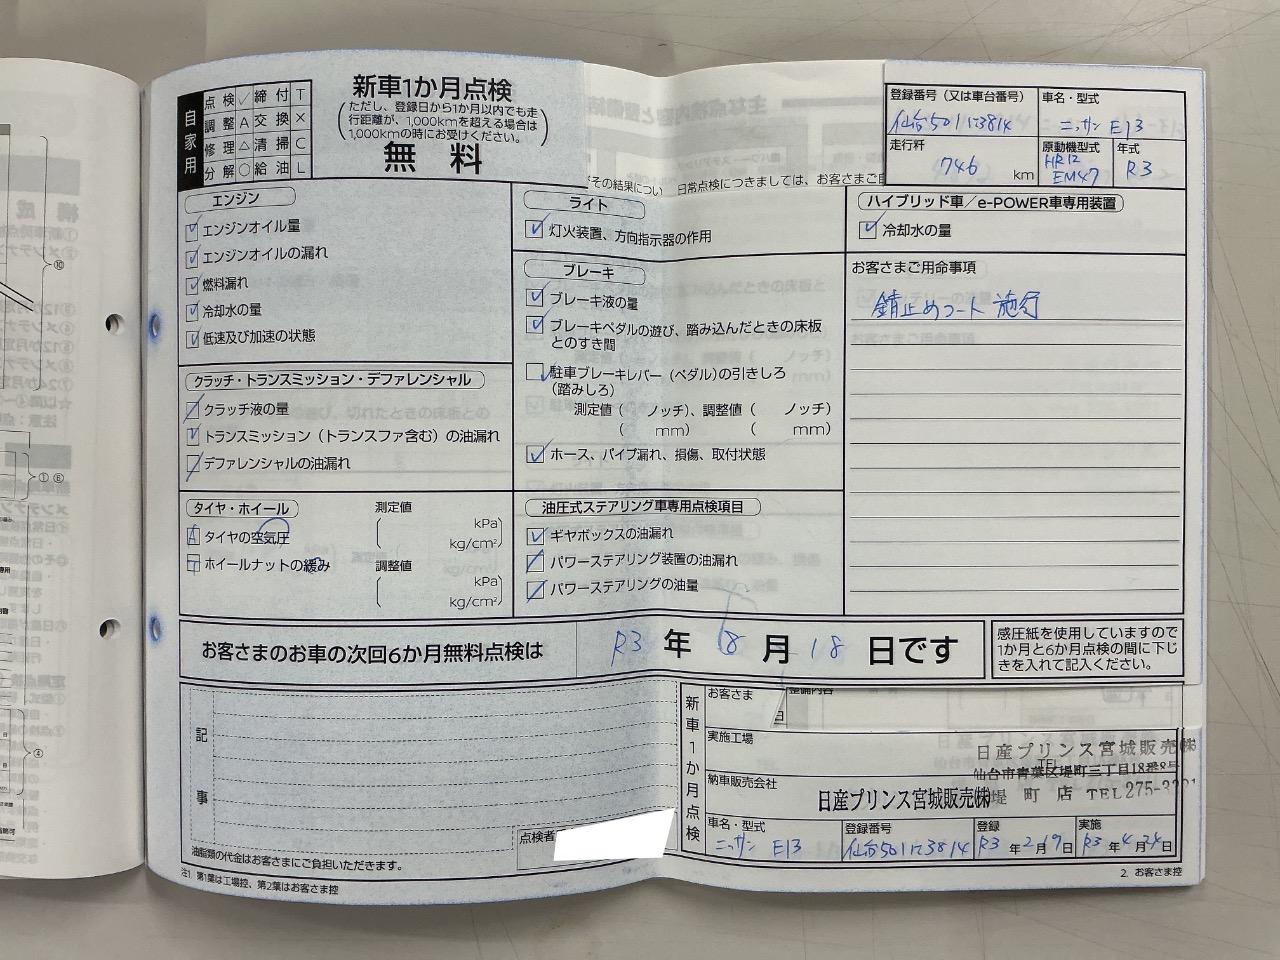 自家用
点検✓ 締付T
調整A 交換×
修理△ 清掃C
分解○ 給油L
新車1か月点検
(ただし、登録日から1か月以内でも走
行距離が、1,000kmを超える場合は
1,000kmの時にお受けください。)
無料
登録番号（又は車台番号）
車名・型式
ニッサン E13
走行粁
746 km
原動機型式
HR12
EM47
年式
R3
日常点検につきましては、お客さまご自
エンジン
エンジンオイル量
エンジンオイルの漏れ
燃料漏れ
冷却水の量
低速及び加速の状態
クラッチ・トランスミッション・デファレンシャル
クラッチ液の量
トランスミッション（トランスファ含む）の油漏れ
デファレンシャルの油漏れ
タイヤ・ホイール
A タイヤの空気圧
T ホイールナットの緩み
測定値
( kPa)
kg/cm²)
調整値
( kPa)
kg/cm²)
ライト
灯火装置、方向指示器の作用
ブレーキ
ブレーキ液の量
ブレーキペダルの遊び、踏み込んだときの床板
とのすき間
駐車ブレーキレバー（ペダル）の引きしろ
(踏みしろ)
測定値（ ノッチ）、調整値（ ノッチ）
( mm) ( mm)
ホース、パイプ漏れ、損傷、取付状態
油圧式ステアリング車専用点検項目
ギヤボックスの油漏れ
パワーステアリング装置の油漏れ
パワーステアリングの油量
ハイブリッド車／e-POWER車専用装置
冷却水の量
お客さまご用命事項
錆止めコート 施行
お客さまのお車の次回6か月無料点検は R3 年 8 月 18 日です
感圧紙を使用していますので
1か月と6か月点検の間に下じ
きを入れて記入ください。
記事
油脂類の代金はお客さまにご負担いただきます。
点検者
新車1か月点検
お客さま
整備内容
実施工場
日産プリンス宮城販売㈱
仙台市青葉区堤町三丁目18番8号
堤町店 TEL275-
納車販売会社
日産プリンス宮城販売㈱
車名・型式
ニッサン E13
登録番号
登録
R3年2月19日
実施
R3年4月24日
注1. 第1葉は工場控、第2葉はお客さま控
2. お客さま控